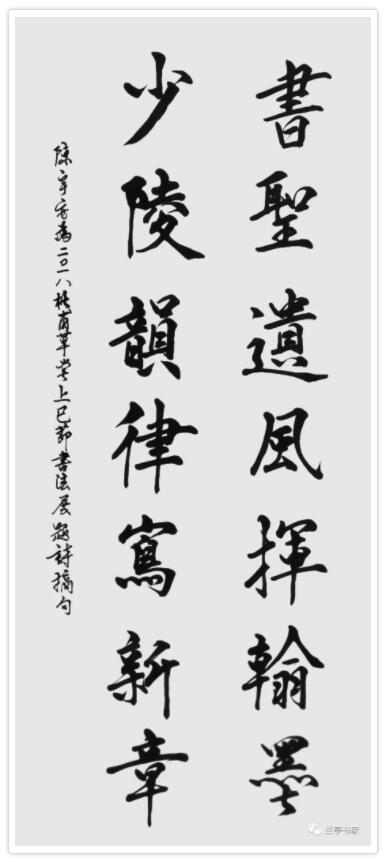 書聖遺風揮翰墨
少陵韻律寫新章
陳宇方為二〇一八杜甫草堂上巳節書法展題詩摘句
兰亭书家